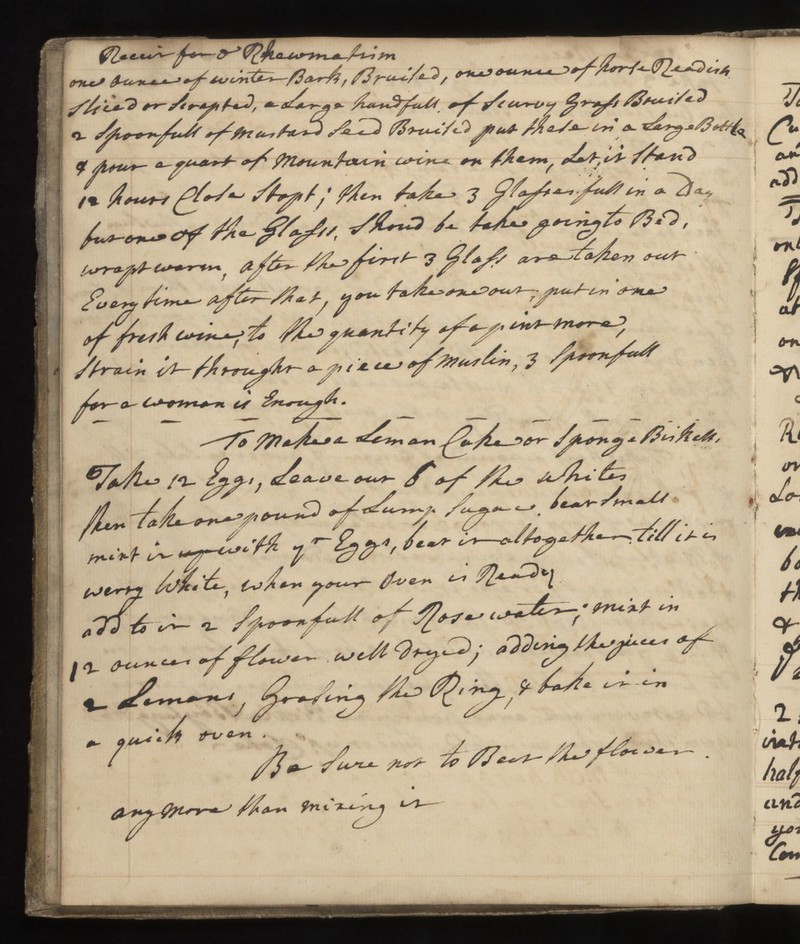 Receit for a Rhewmatism
one ounce of winter Bark, Bruised, one ounce of horse Readish
Sliced or Scrapted, a Large handfull of Scurvy Grass Bruised
2 Spoonfull of mustard Seed Bruised put these in a Large Bottle
& pour a quart of Mountain wine on them, Let it Stand
12 hours Close Stopt; then take 3 Glasses full in a Day
but one of the Glass, Shoud be take going to Bed,
wrapt warm, after the first 3 Glass are taken out
Every time after that, you take one out, put in one
of fresh wine, to the quantity of a pint more,
Strain it throught a piece of muslin, 3 Spoonfull
for a woman is Enough.
To Make a Leman Cake or Sponge Biskett,
Take 12 Eggs, Leave out 6 of the whites
then take one pound of Lump Sugar, beat Small
mixt it up with yr Eggs, beat it altogether till it is
werry White, when your Oven is Ready
add to it 2 Spoonfull of Rose water; mixt in
12 ounces of flower well Dryed; adding the juces of
2 Lemans, Greasing the Ring, & bake it in
a quick oven.
Be Sure not to Beet the flower
any more than mixing it
To
an
add
on
Lo
bo
th
&
2
half
and